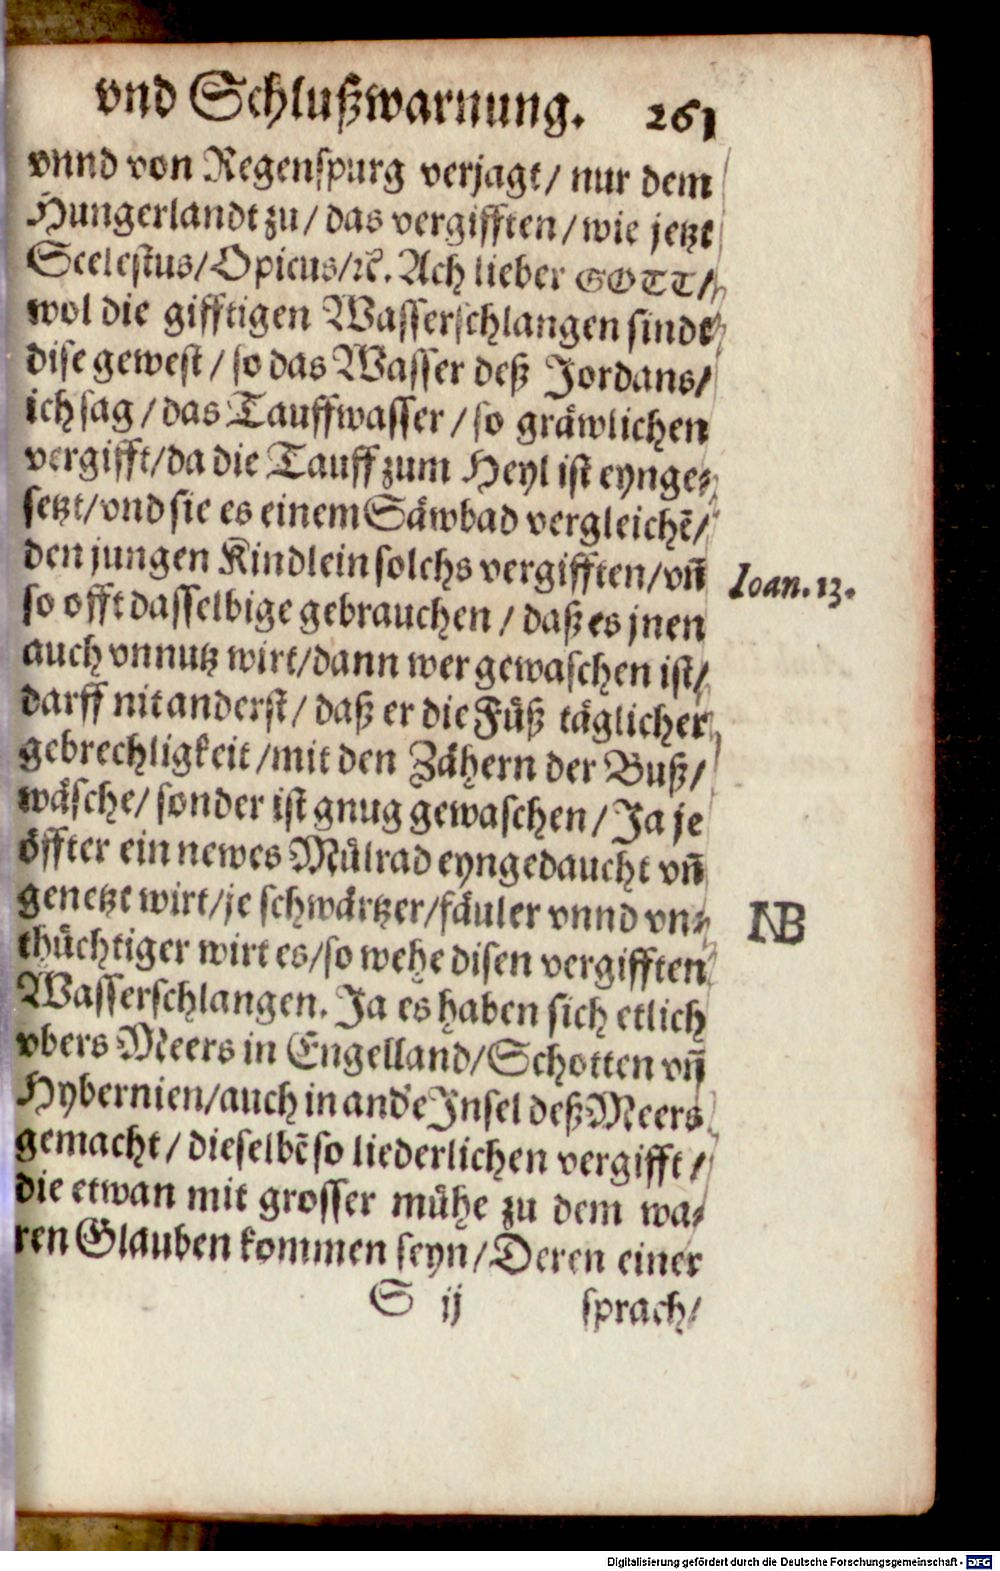 vnd Schlußwarnung. 261
vnnd von Regenspurg verjagt/ nur dem
Hungerlandt zu/ das vergifften/ wie jetzt
Scelestus/Opicus/ꝛc. Ach lieber GOTT/
wol die gifftigen Wasserschlangen sindt
dise gewest/ so das Wasser deß Jordans/
ich sag/ das Tauffwasser/ so gräwlichen
vergifft/da die Tauff zum Heyl ist eynge⸗
setzt/vnd sie es einem Säwbad vergleichẽ/
den jungen Kindlein solchs vergifften/vñ
Ioan. 13.
so offt dasselbige gebrauchen/ daß es jnen
auch vnnutz wirt/dann wer gewaschen ist/
darff nit anderst/ daß er die Füß täglicher
gebrechligkeit/mit den Zähern der Buß/
wäsche/ sonder ist gnug gewaschen/ Ja je
öffter ein newes Mülrad eyngedaucht vñ
genetzt wirt/je schwärtzer/fäuler vnnd vn⸗
NB
thüchtiger wirt es/so wehe disen vergifften
Wasserschlangen. Ja es haben sich etlich
vbers Meers in Engelland/Schotten vñ
Hybernien/auch in and'e Insel deß Meers
gemacht/ dieselbẽ so liederlichen vergifft/
die etwan mit grosser mühe zu dem wa⸗
ren Glauben kommen seyn/Deren einer
S ij sprach/
Digitalisierung gefördert durch die Deutsche Forschungsgemeinschaft - DFG